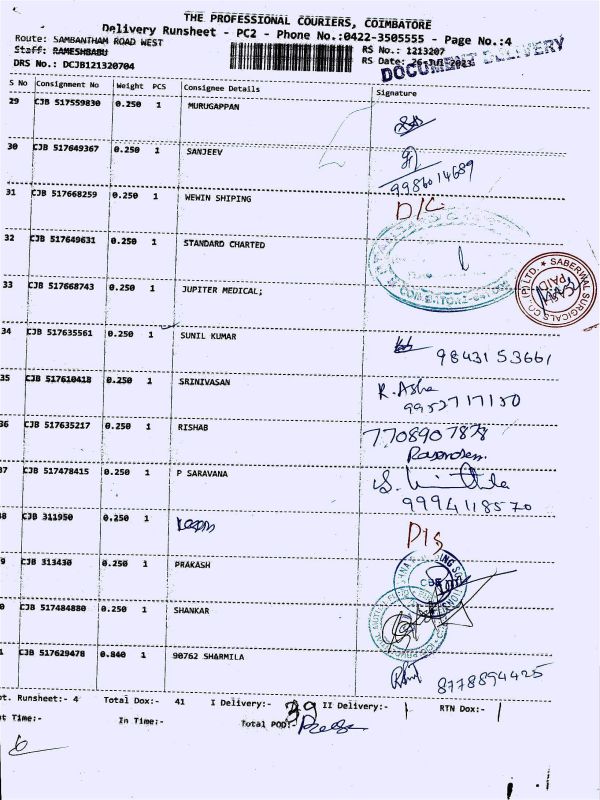 THE PROFESSIONAL COURIERS, COIMBATORE
Delivery Runsheet - PC2 - Phone No.:0422-3505555 - Page No.:4
Route: SAMBANTHAM ROAD WEST
RS No.: 1213207
Staff: RAMESHBABU
RS Date: 26-Jul-2023
DRS No.: DCJB121320704
DOCUMENT DELIVERY
S No Consignment No Weight PCS Consignee Details Signature
29 CJB 517559830 0.250 1 MURUGAPPAN
30 CJB 517649367 0.250 1 SANJEEV
9986014689
31 CJB 517668259 0.250 1 WEWIN SHIPING
D/C
32 CJB 517649631 0.250 1 STANDARD CHARTED
COIMBATORE
33 CJB 517668743 0.250 1 JUPITER MEDICAL;
SABERWAL SURGICALS CO. (P) LTD.
PAID
34 CJB 517635561 0.250 1 SUNIL KUMAR
98431 53661
35 CJB 517610418 0.250 1 SRINIVASAN
R. Asha
9952717150
36 CJB 517635217 0.250 1 RISHAB
7708907878
37 CJB 517478415 0.250 1 P SARAVANA
9994118570
8 CJB 311950 0.250 1
D/s
9 CJB 313430 0.250 1 PRAKASH
CBE
0 CJB 517484880 0.250 1 SHANKAR
1 CJB 517629478 0.840 1 90762 SHARMILA
8778894425
ot. Runsheet:- 4 Total Dox:- 41 I Delivery:- 39 II Delivery:- 1 RTN Dox:- 1
ut Time:- In Time:- Total POD:-